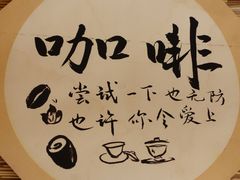 咖啡
尝试一下也无防
也许你会爱上